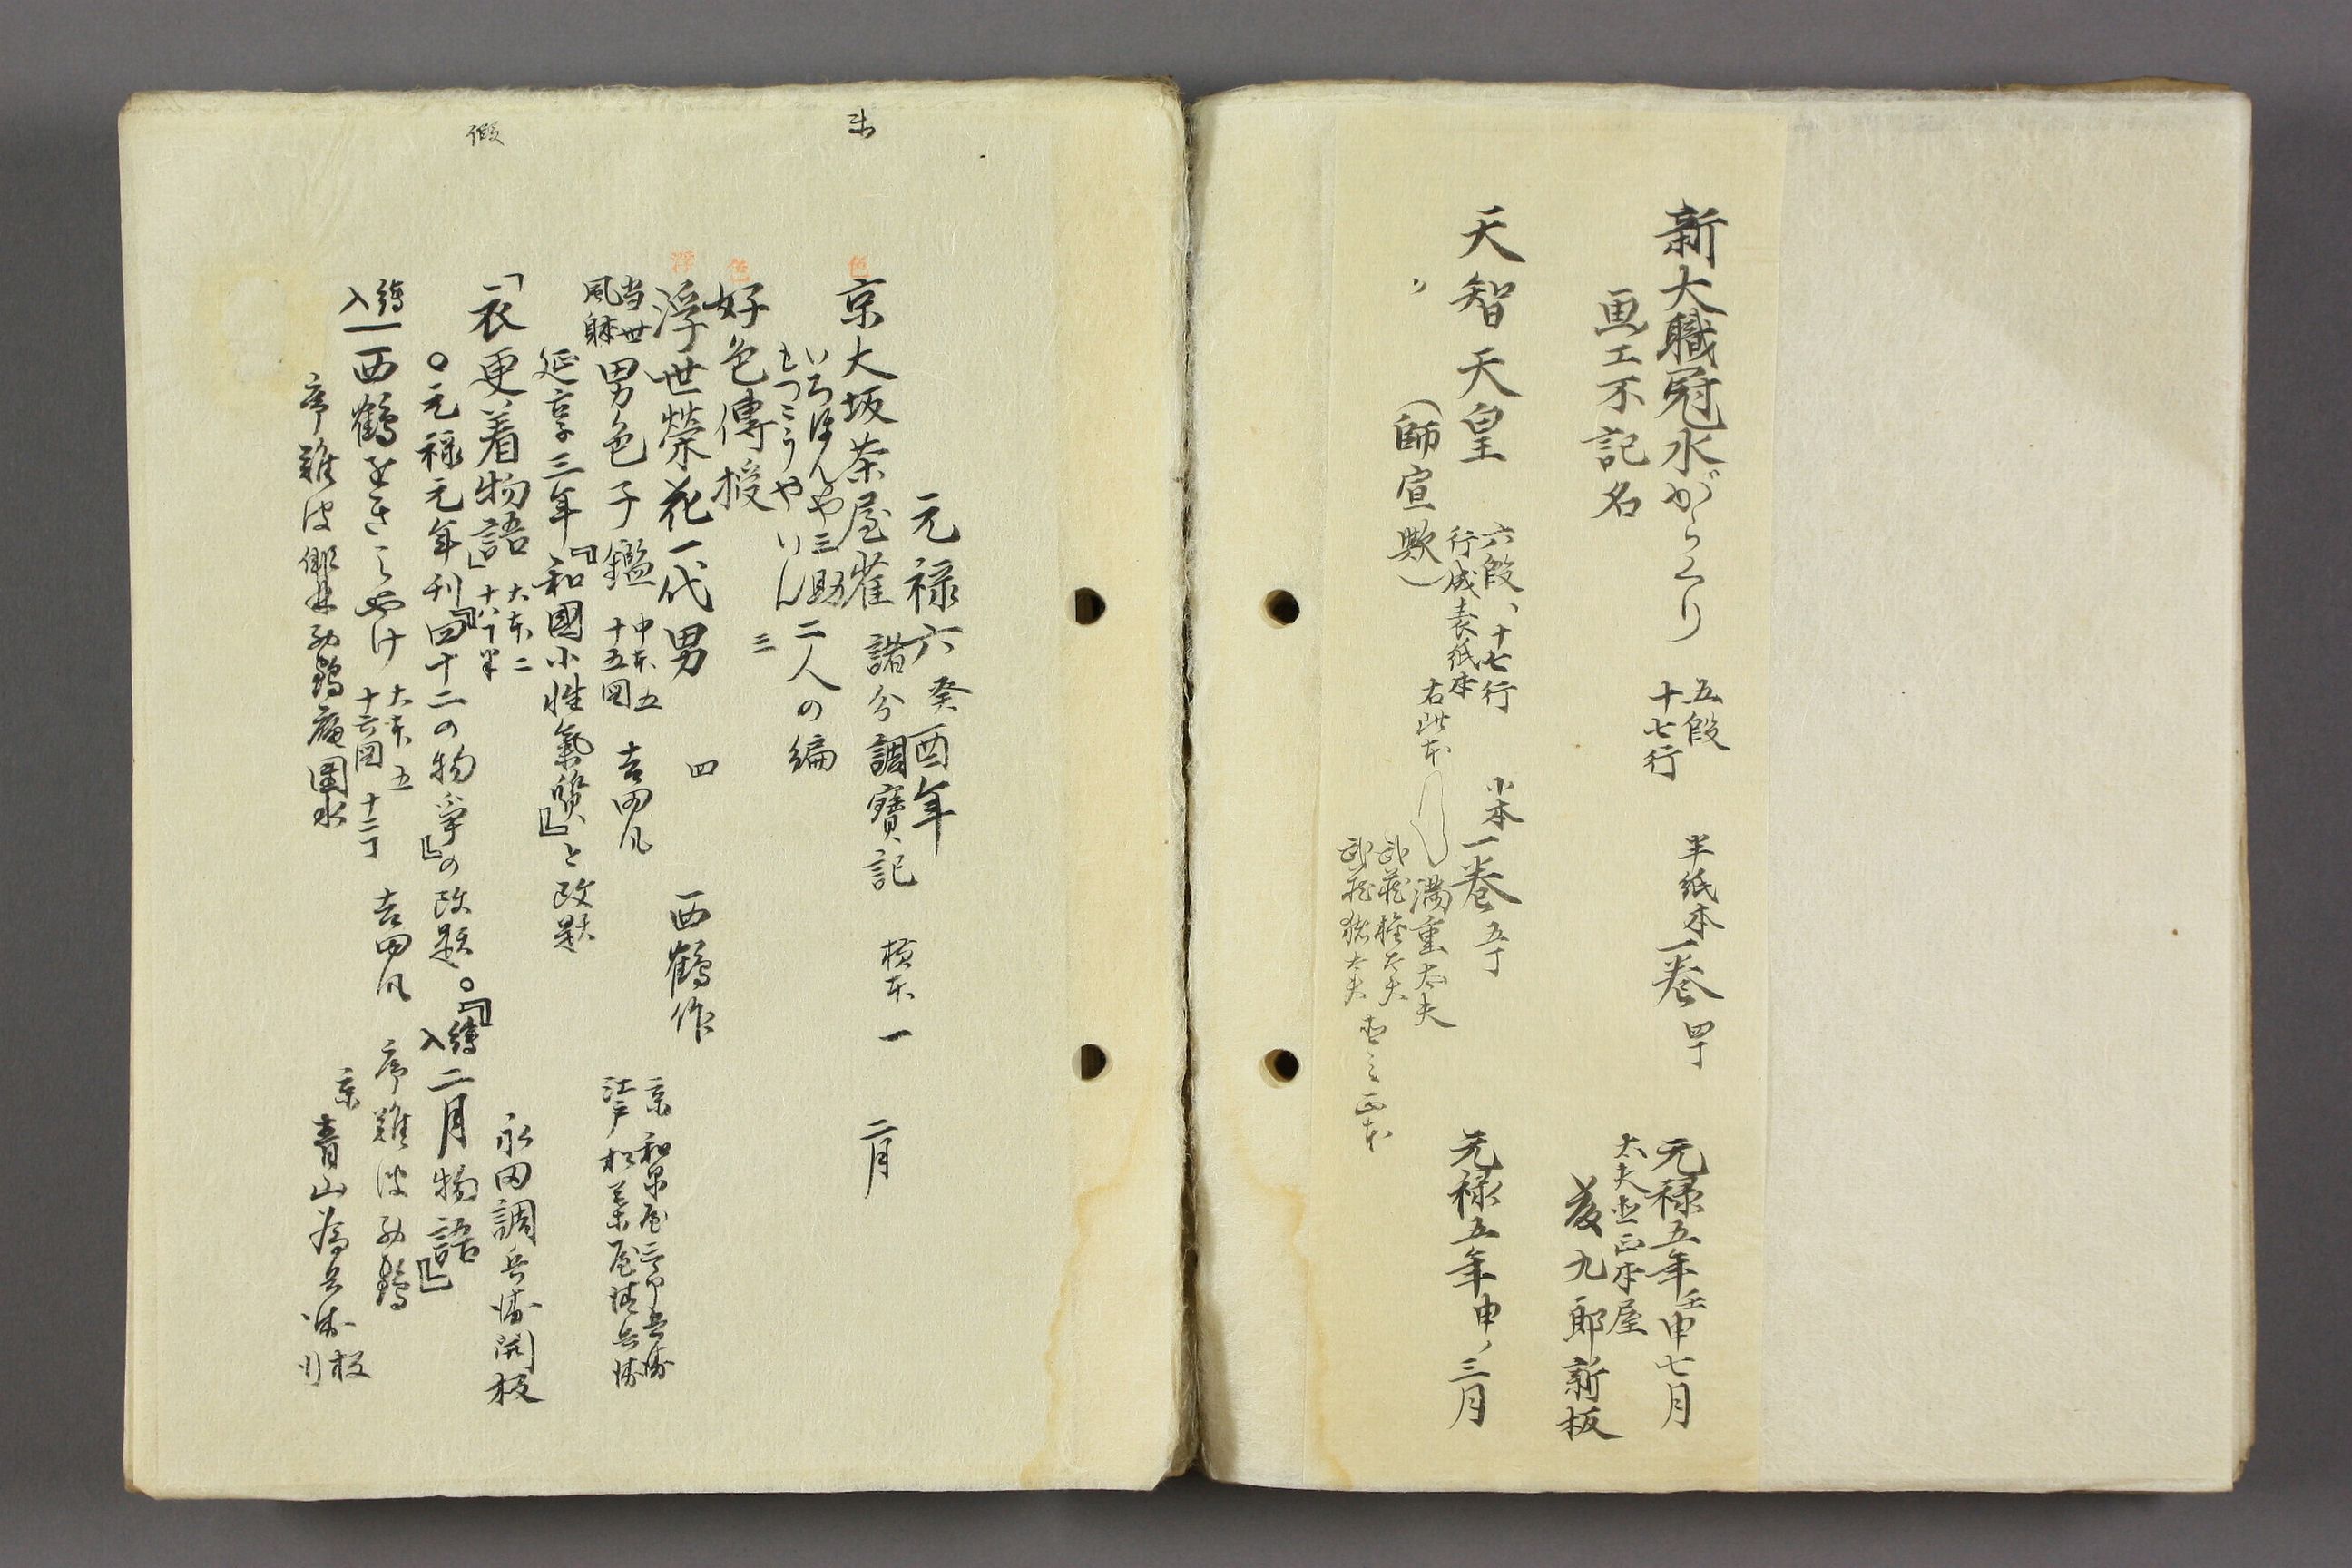 新大職冠水がらくり
五段
十七行
半紙本一巻
四丁
元禄五年壬申七月
太夫直正本屋
菱九郎新板
画工不記名
天智天皇
六段、十七行
行成表紙本
小本一巻
五丁
元禄五年申ノ三月
(師宣歟)
右此本
満重太夫
武蔵権太夫
直之正本
元禄六癸酉年
色
京大坂茶屋雀
諸分調寳記
横本一
二月
いろはほんや三助
もつこうやいん
二人の編
色
好色傳授
三
浮
浮世榮花一代男
四
西鶴作
京
江戸
当世
風躰
男色子鑑
中本五
十五図
吉田凡
延享三年『和國小性氣質』と改題
假
「衣更着物語」
大本二
十八丁半
永田調兵衛開板
○元禄元年刊『四十二の物爭』の改題。
○『繪入二月物語』
繪入
西鶴をきみやけ
大本五
十六図
十二丁
吉田凡
序難波
序難波俳林
團水
京
青山為兵衛
板